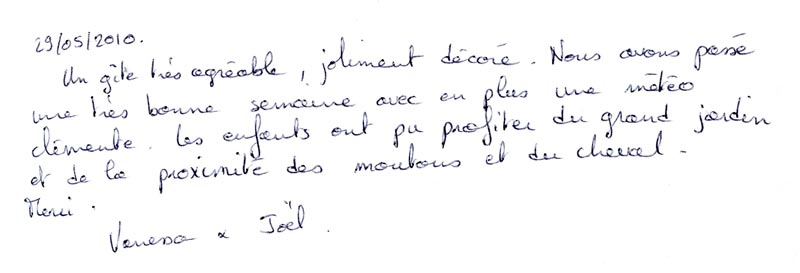 29/05/2010.
Un gîte très agréable, joliment décoré. Nous avons passé
une très bonne semaine avec en plus une météo
clémente. Les enfants ont pu profiter du grand jardin
et de la proximité des moutons et du cheval.
Merci.
Vanessa & Joël.